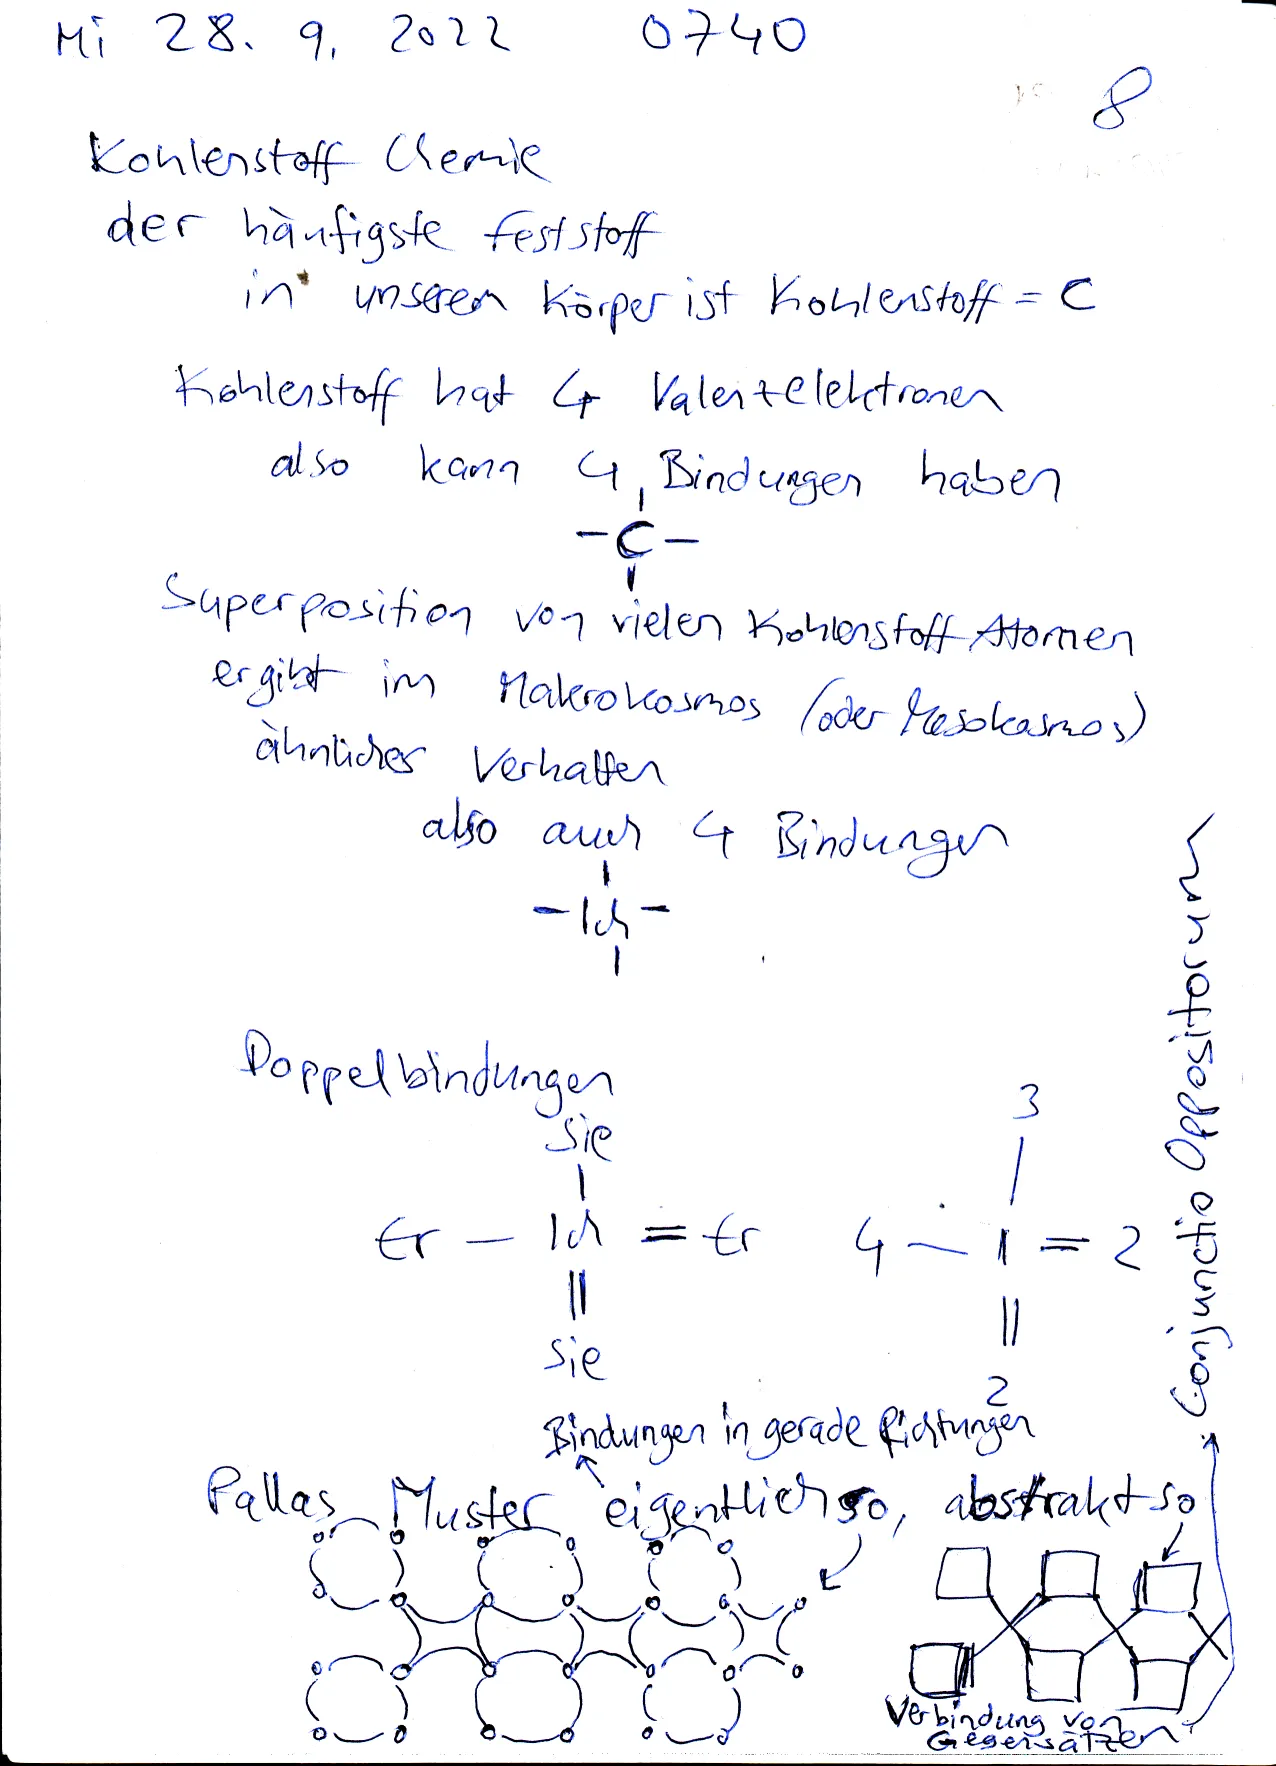 Mi 28. 9. 2022 0740
8
Kohlenstoff Chemie
der häufigste Feststoff
in unserem Körper ist Kohlenstoff = C
Kohlenstoff hat 4 Valenzelektronen
also kann 4 Bindungen haben
- C -
Superposition von vielen Kohlenstoff Atomen
ergibt im Makrokosmos (oder Mesokosmos)
ähnliches Verhalten
also auch 4 Bindungen
- Ich -
Doppelbindungen
Sie
Er - Ich = Er
Sie
3
4 - 1 = 2
2
Bindungen in gerade Richtungen
Pallas Muster eigentlich so, abstrakt so
Verbindung von
Gegensätzen
Conjunctio Oppositorum